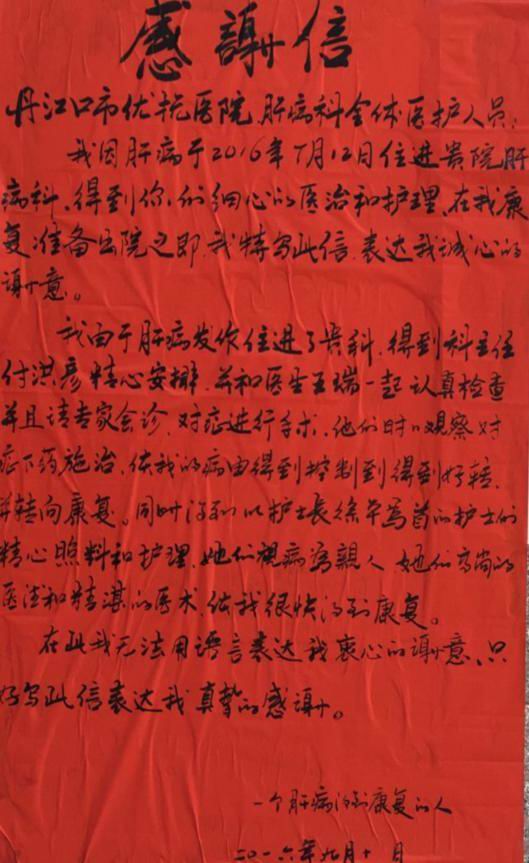 感謝信
丹江口市优抚医院肝病科全体医护人员:
我因肝病于2016年7月12日住进贵院肝
病科,得到你们细心的医治和护理,在我康
复,准备出院之即,我特写此信,表达我诚心的
謝意。
我由于肝病发作住进了贵科,得到科主任
付洪彦精心安排,并和医生王端一起认真检查
并且请专家会诊,对症进行手术,他们时时观察对
症下药施治,使我的病由得到控制到得到好转,
并转向康复。同时得到以护士长徐平为首的护士们
精心照料和护理,她们視病為親人,她们高尚的
医德和精湛的医术,使我很快得到康复。
在此我无法用语言表达我衷心的謝意,只
好写此信表达我真挚的感謝。
一个肝病得到康复的人
二〇一六年九月十 月